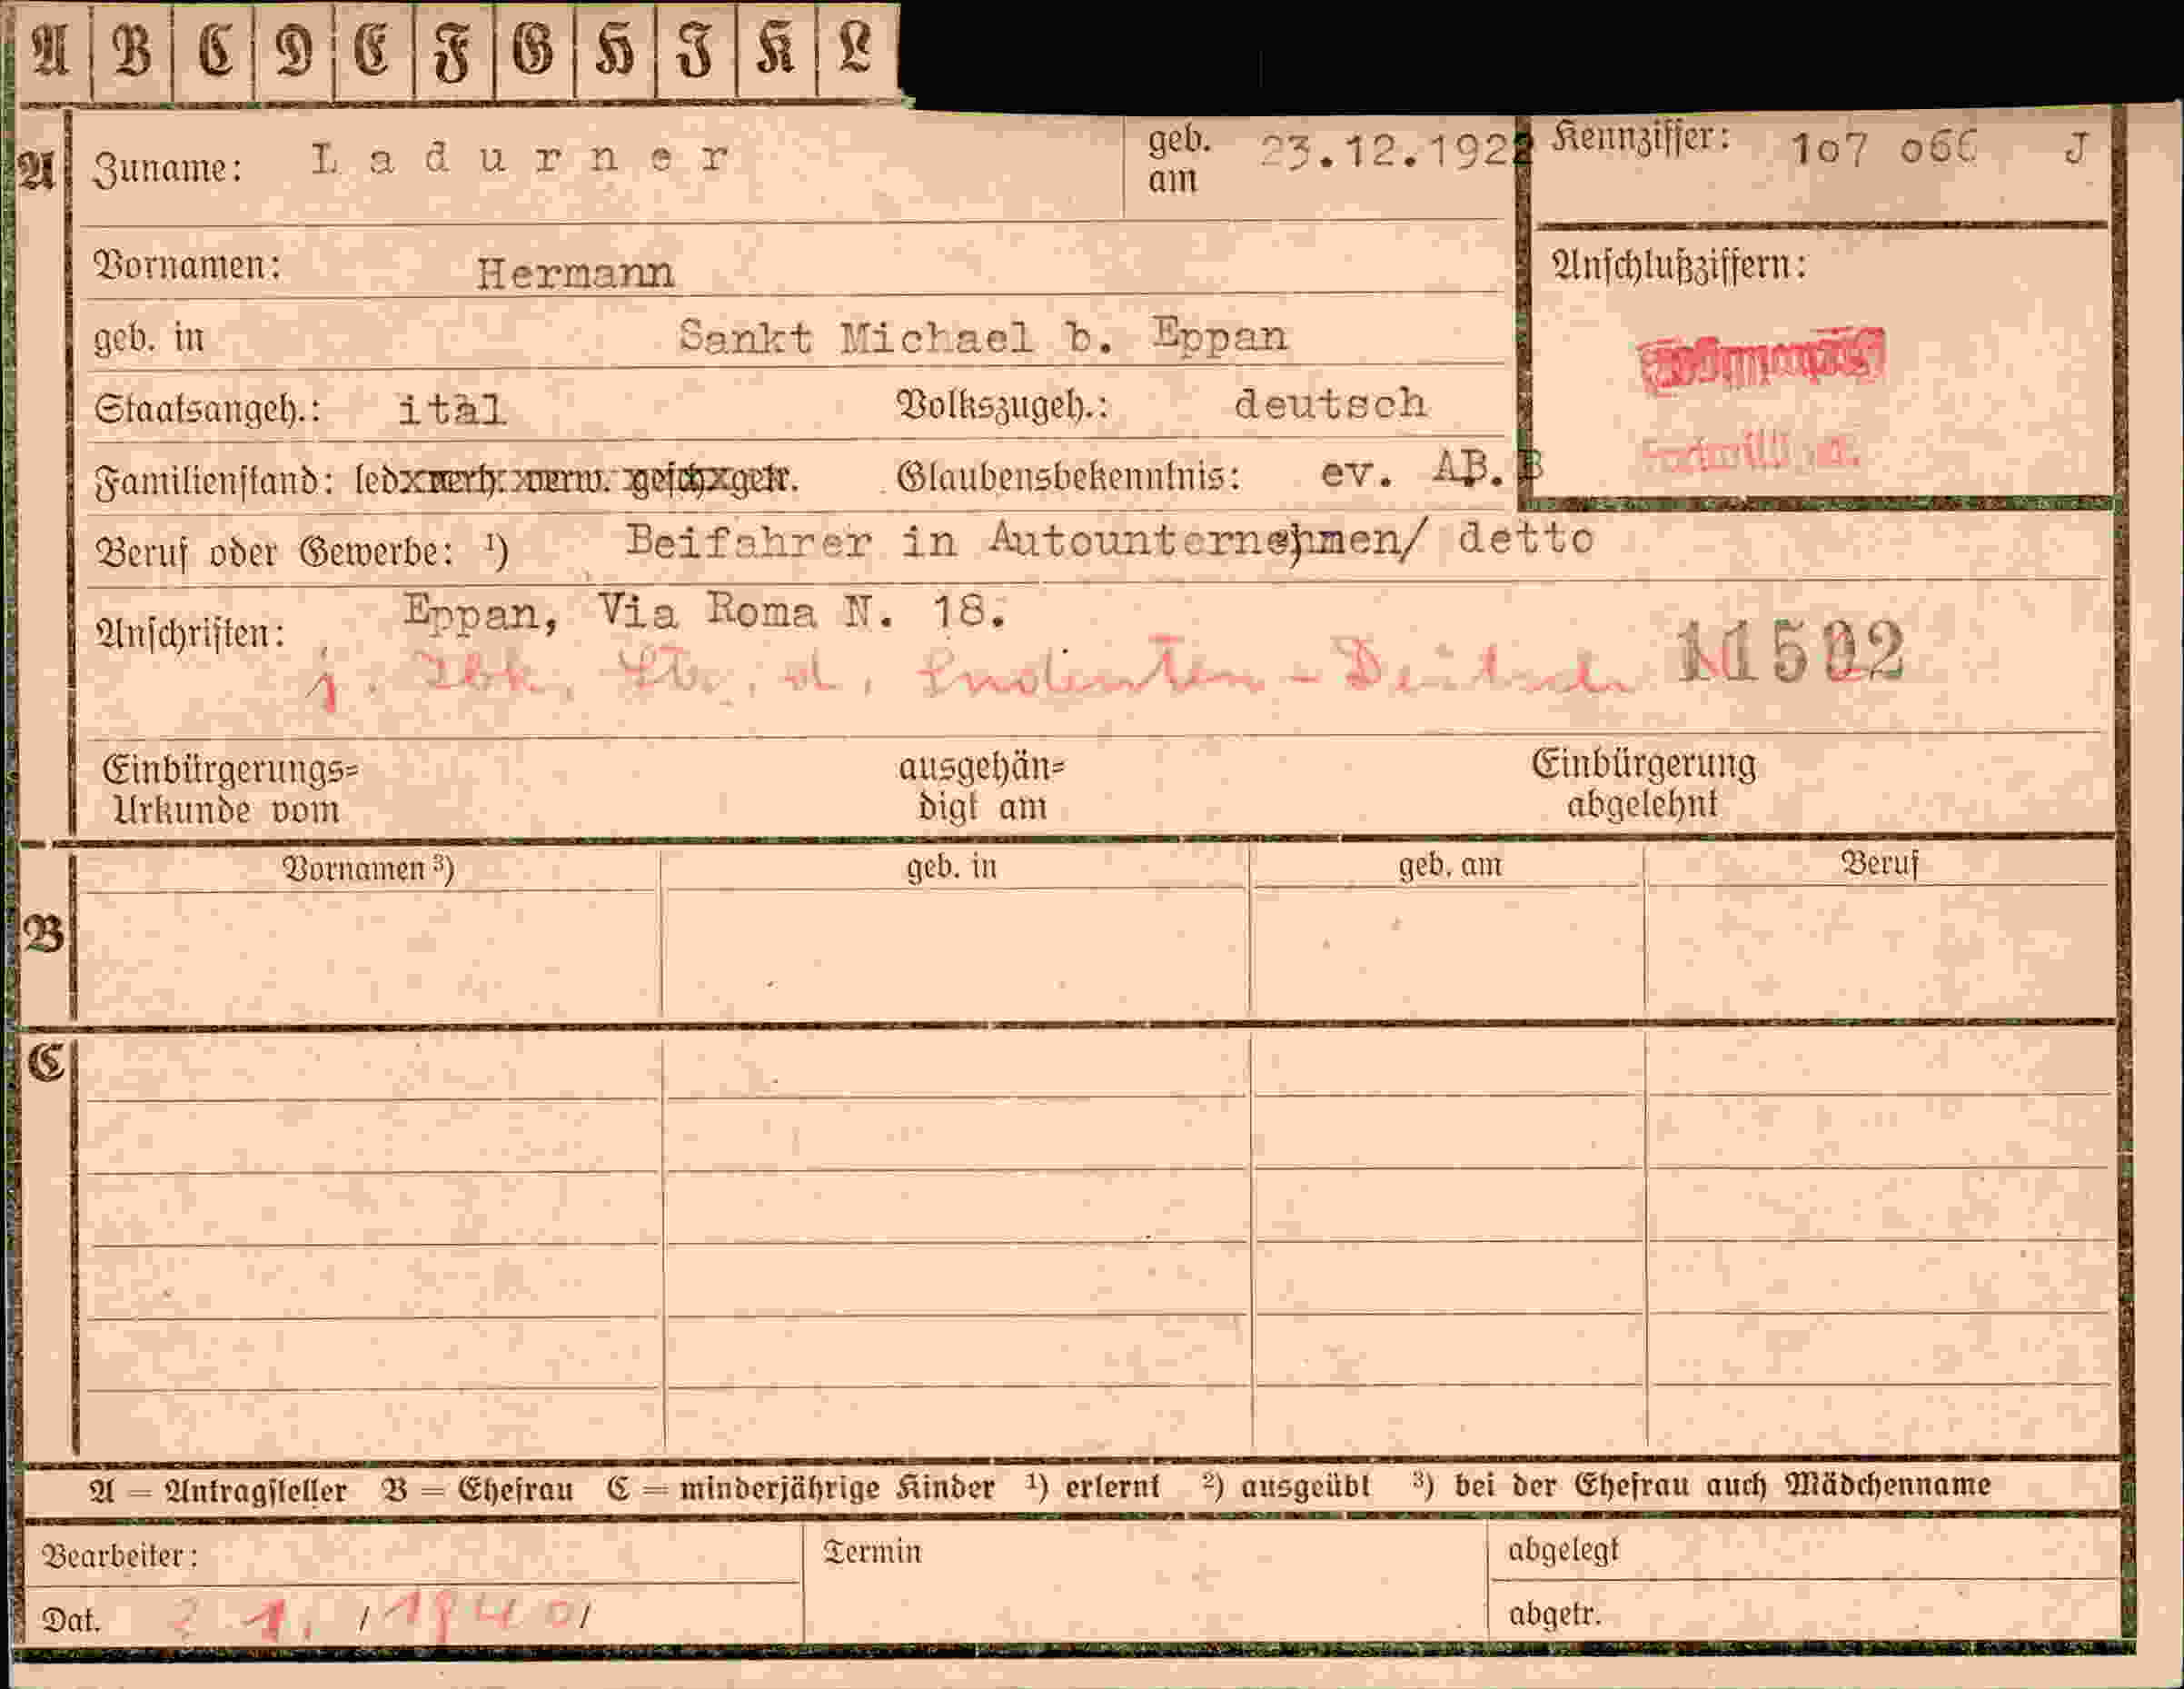 A B C D E F G H I K L
A Zuname: Ladurner geb. am 23.12.1922 Kennziffer: 107 066 J
Vornamen: Hermann Anschlußziffern:
geb. in Sankt Michael b. Eppan
Staatsangeh.: ital Volkszugeh.: deutsch
Familienstand: led. verh. verw. gesch. getr. Glaubensbekenntnis: ev. AB. B
Beruf oder Gewerbe: ¹) Beifahrer in Autounternehmen/ detto
Anschriften: Eppan, Via Roma N. 18.
j. Ibk, Str. d. Sudenten-Deutsch
Einbürgerungs= ausgehän= Einbürgerung
Urkunde vom digt am abgelehnt
Vornamen ³) geb. in geb. am Beruf
B
C
A = Antragsteller B = Ehefrau C = minderjährige Kinder ¹) erlernt ²) ausgeübt ³) bei der Ehefrau auch Mädchenname
Bearbeiter: Termin abgelegt
Dat. 1. /1940/ abgetr.